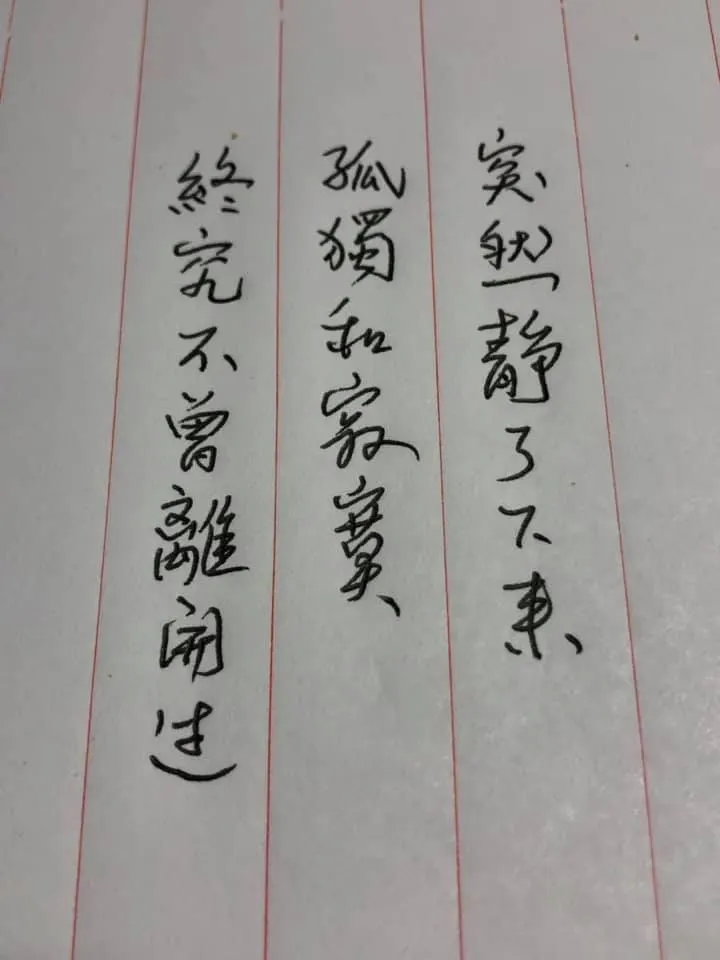 突然静了下来
孤獨和寂寞
終究不曾離開过